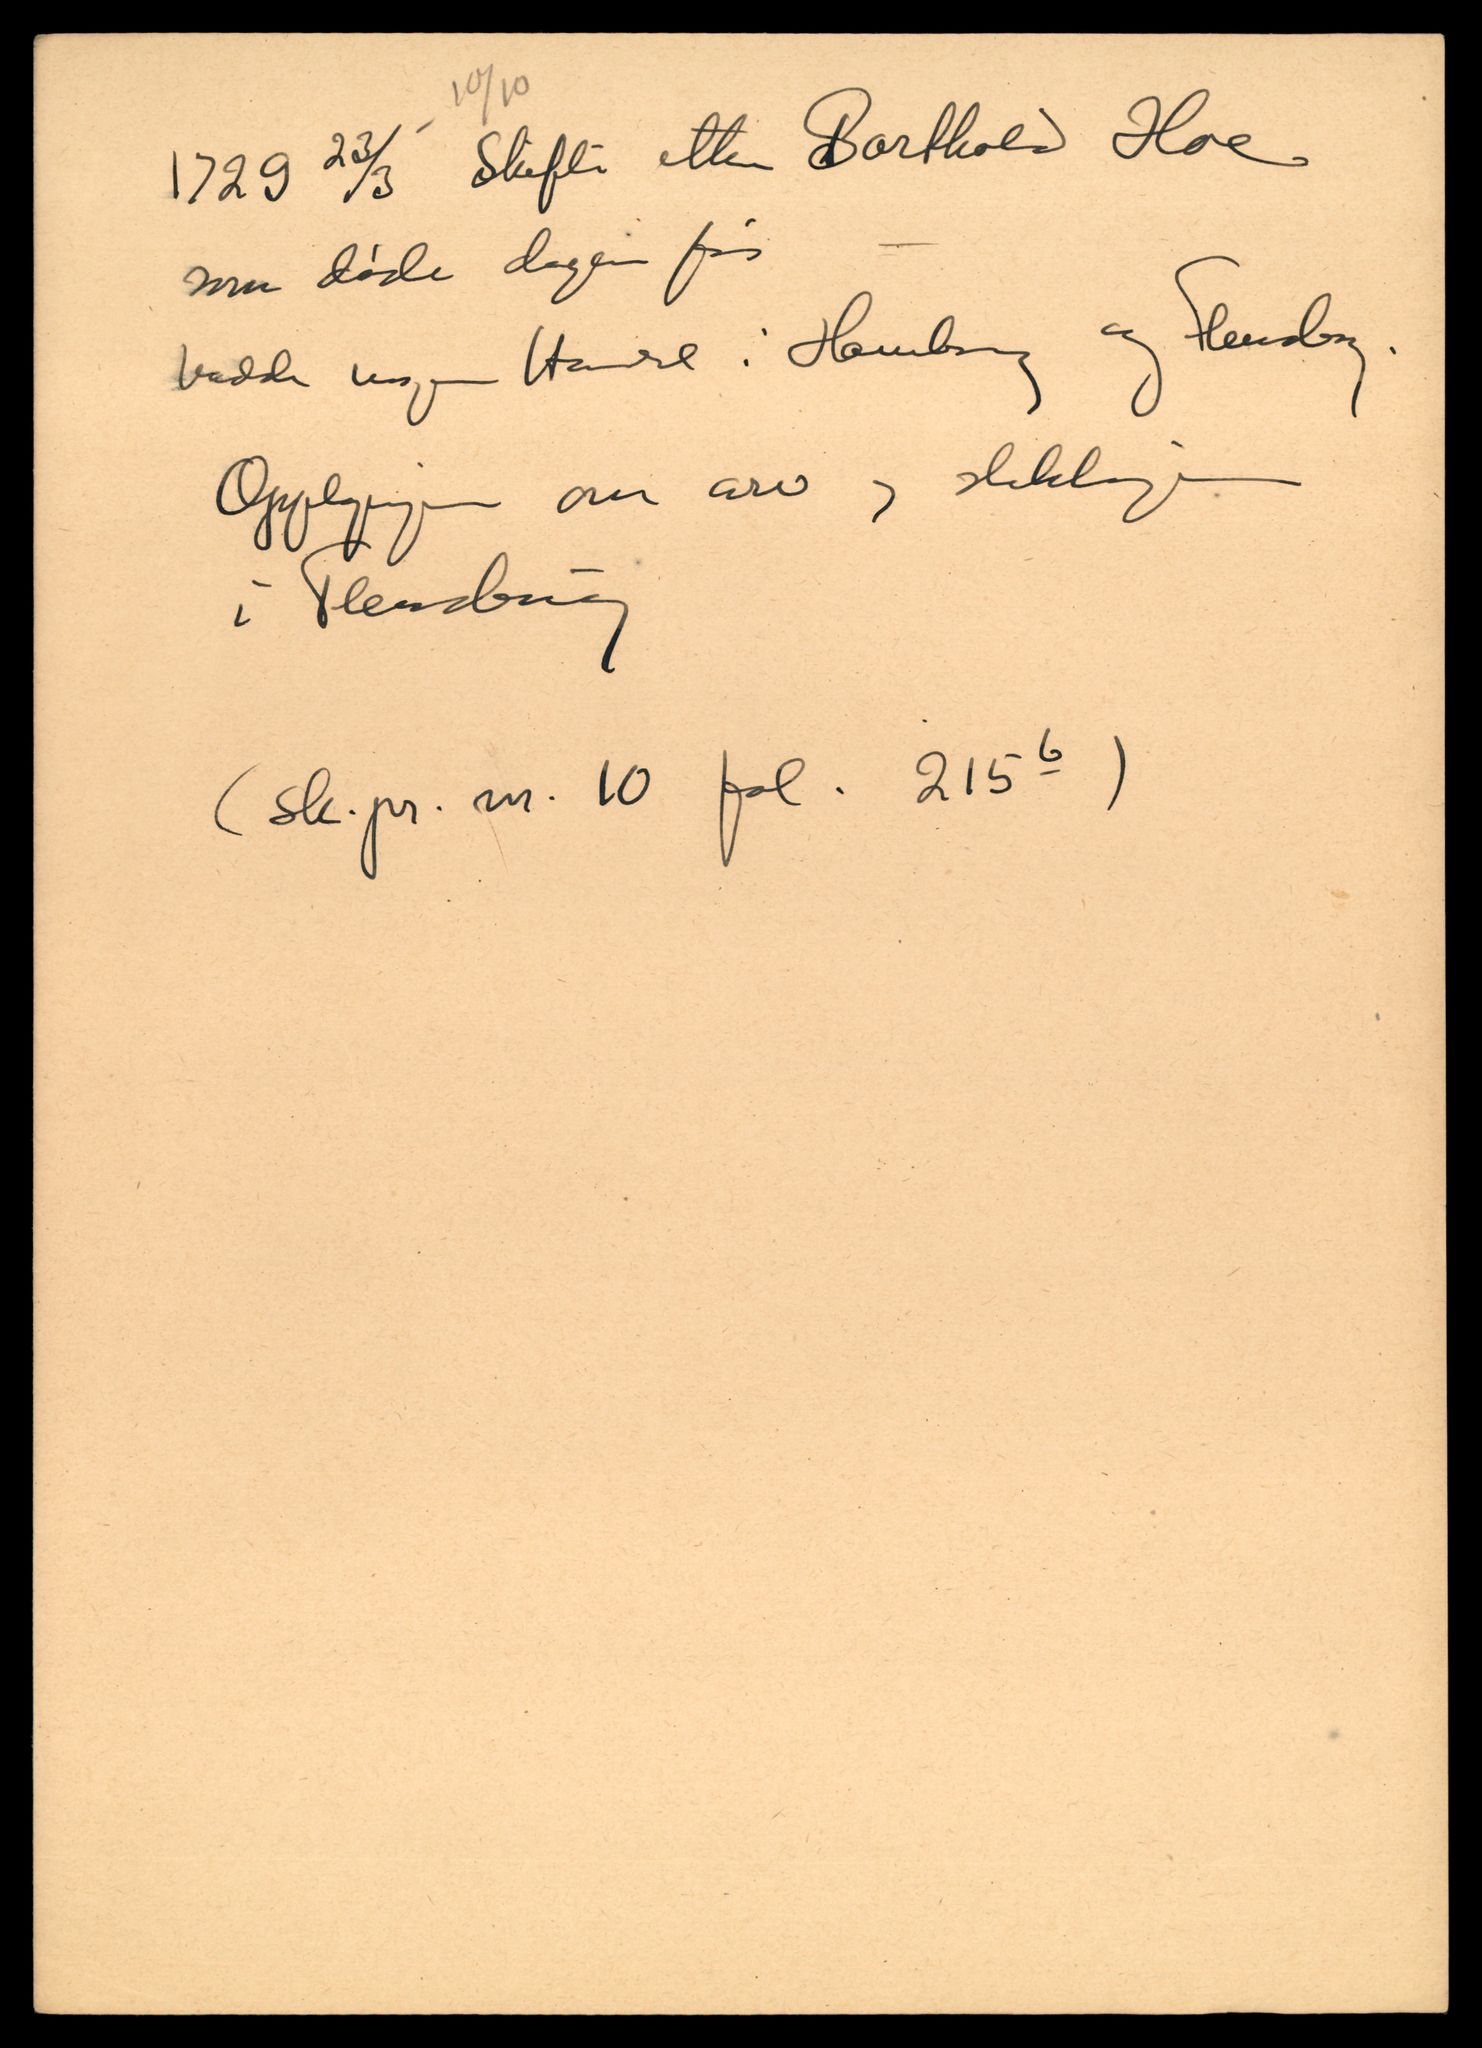 10/10
1729 23/3 - Skifte etter Barthold Hoe
som døde dagen før
hadde ingen Handel i Hamburg og Flensborg.
Opplysninger om arv og slektninger
i Flensburg
(sk.pr. nr. 10 fol. 215 b)